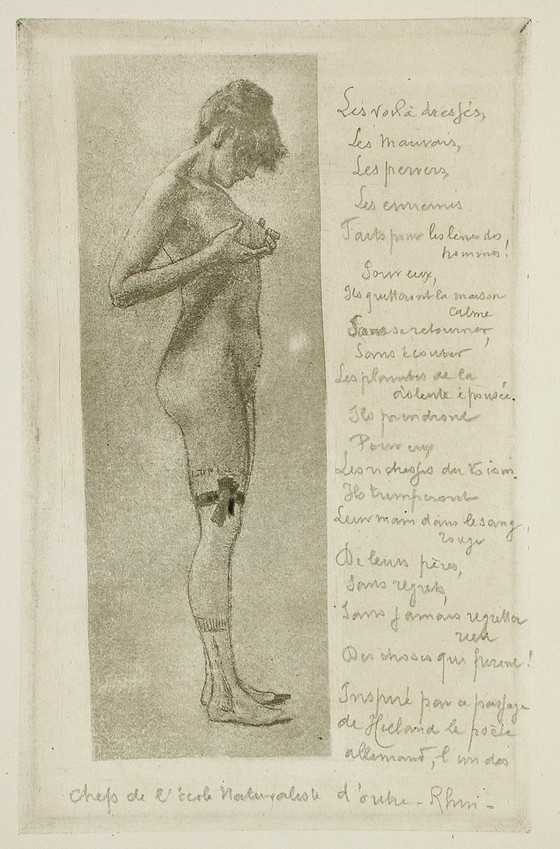 Les voilà dressés,
Les Mauvais,
Les pervers,
Les ennemis
Faits pour les lèvres des
hommes!
Pour eux,
Ils quitteront la maison
calme
Sans se retourner,
Sans écouter
Les plaintes de la
dolente épousée.
Ils prendront
Pour eux
Les richesses du voisin.
Ils tremperont
Leur main dans le sang
rouge
De leurs pères,
Sans regrets,
Sans jamais regretter
rien
Des choses qui furent!
Inspiré par ce passage
de le poète
allemand, l'un des
chefs de l'école Naturaliste d'outre-Rhin-